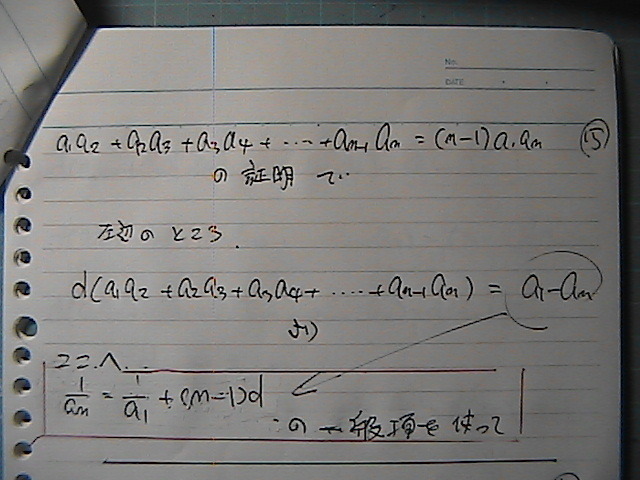 No.
DATE
a₁a₂ + a₂a₃ + a₃a₄ + ‥‥ + aₙ₋₁ aₙ = (n-1) a₁ aₙ ⑮
の 証明 で‥
左辺の ところ.
d(a₁a₂ + a₂a₃ + a₃a₄ + ‥‥ + aₙ₋₁aₙ) = a₁-aₙ
より)
ここへ‥
1/aₙ = 1/a₁ + (n-1)d
の 一般項を 使って